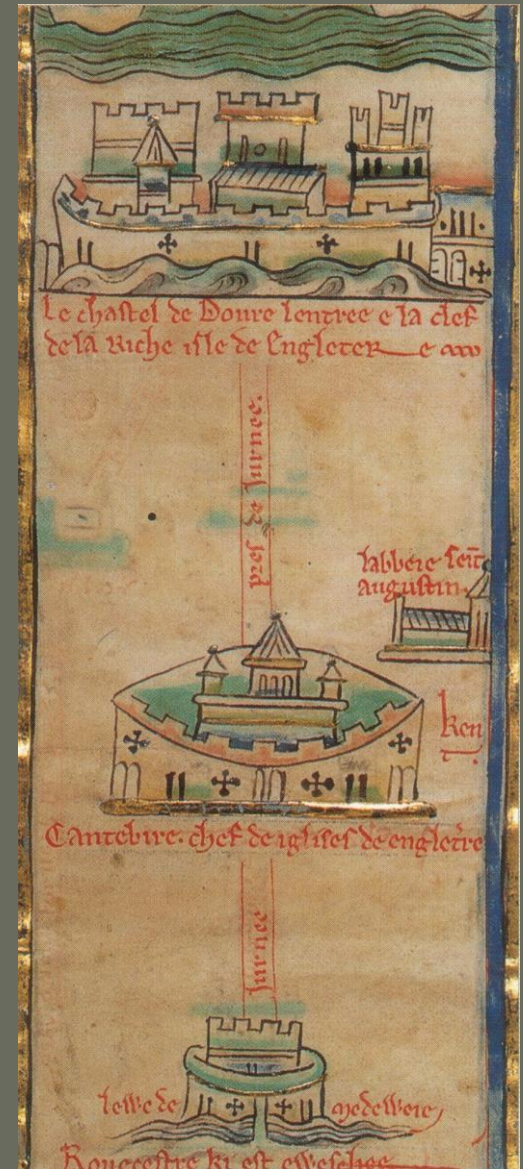 Le chastel de Doure lentree e la clef
de la Riche isle de Engleter e
pres de Jurnee.
labbeie seint
augustin.
Ken
t.
Cantebire. chef de iglises de engletere
Jurnee
lewe de medeweie
Roucestre ki est evesches